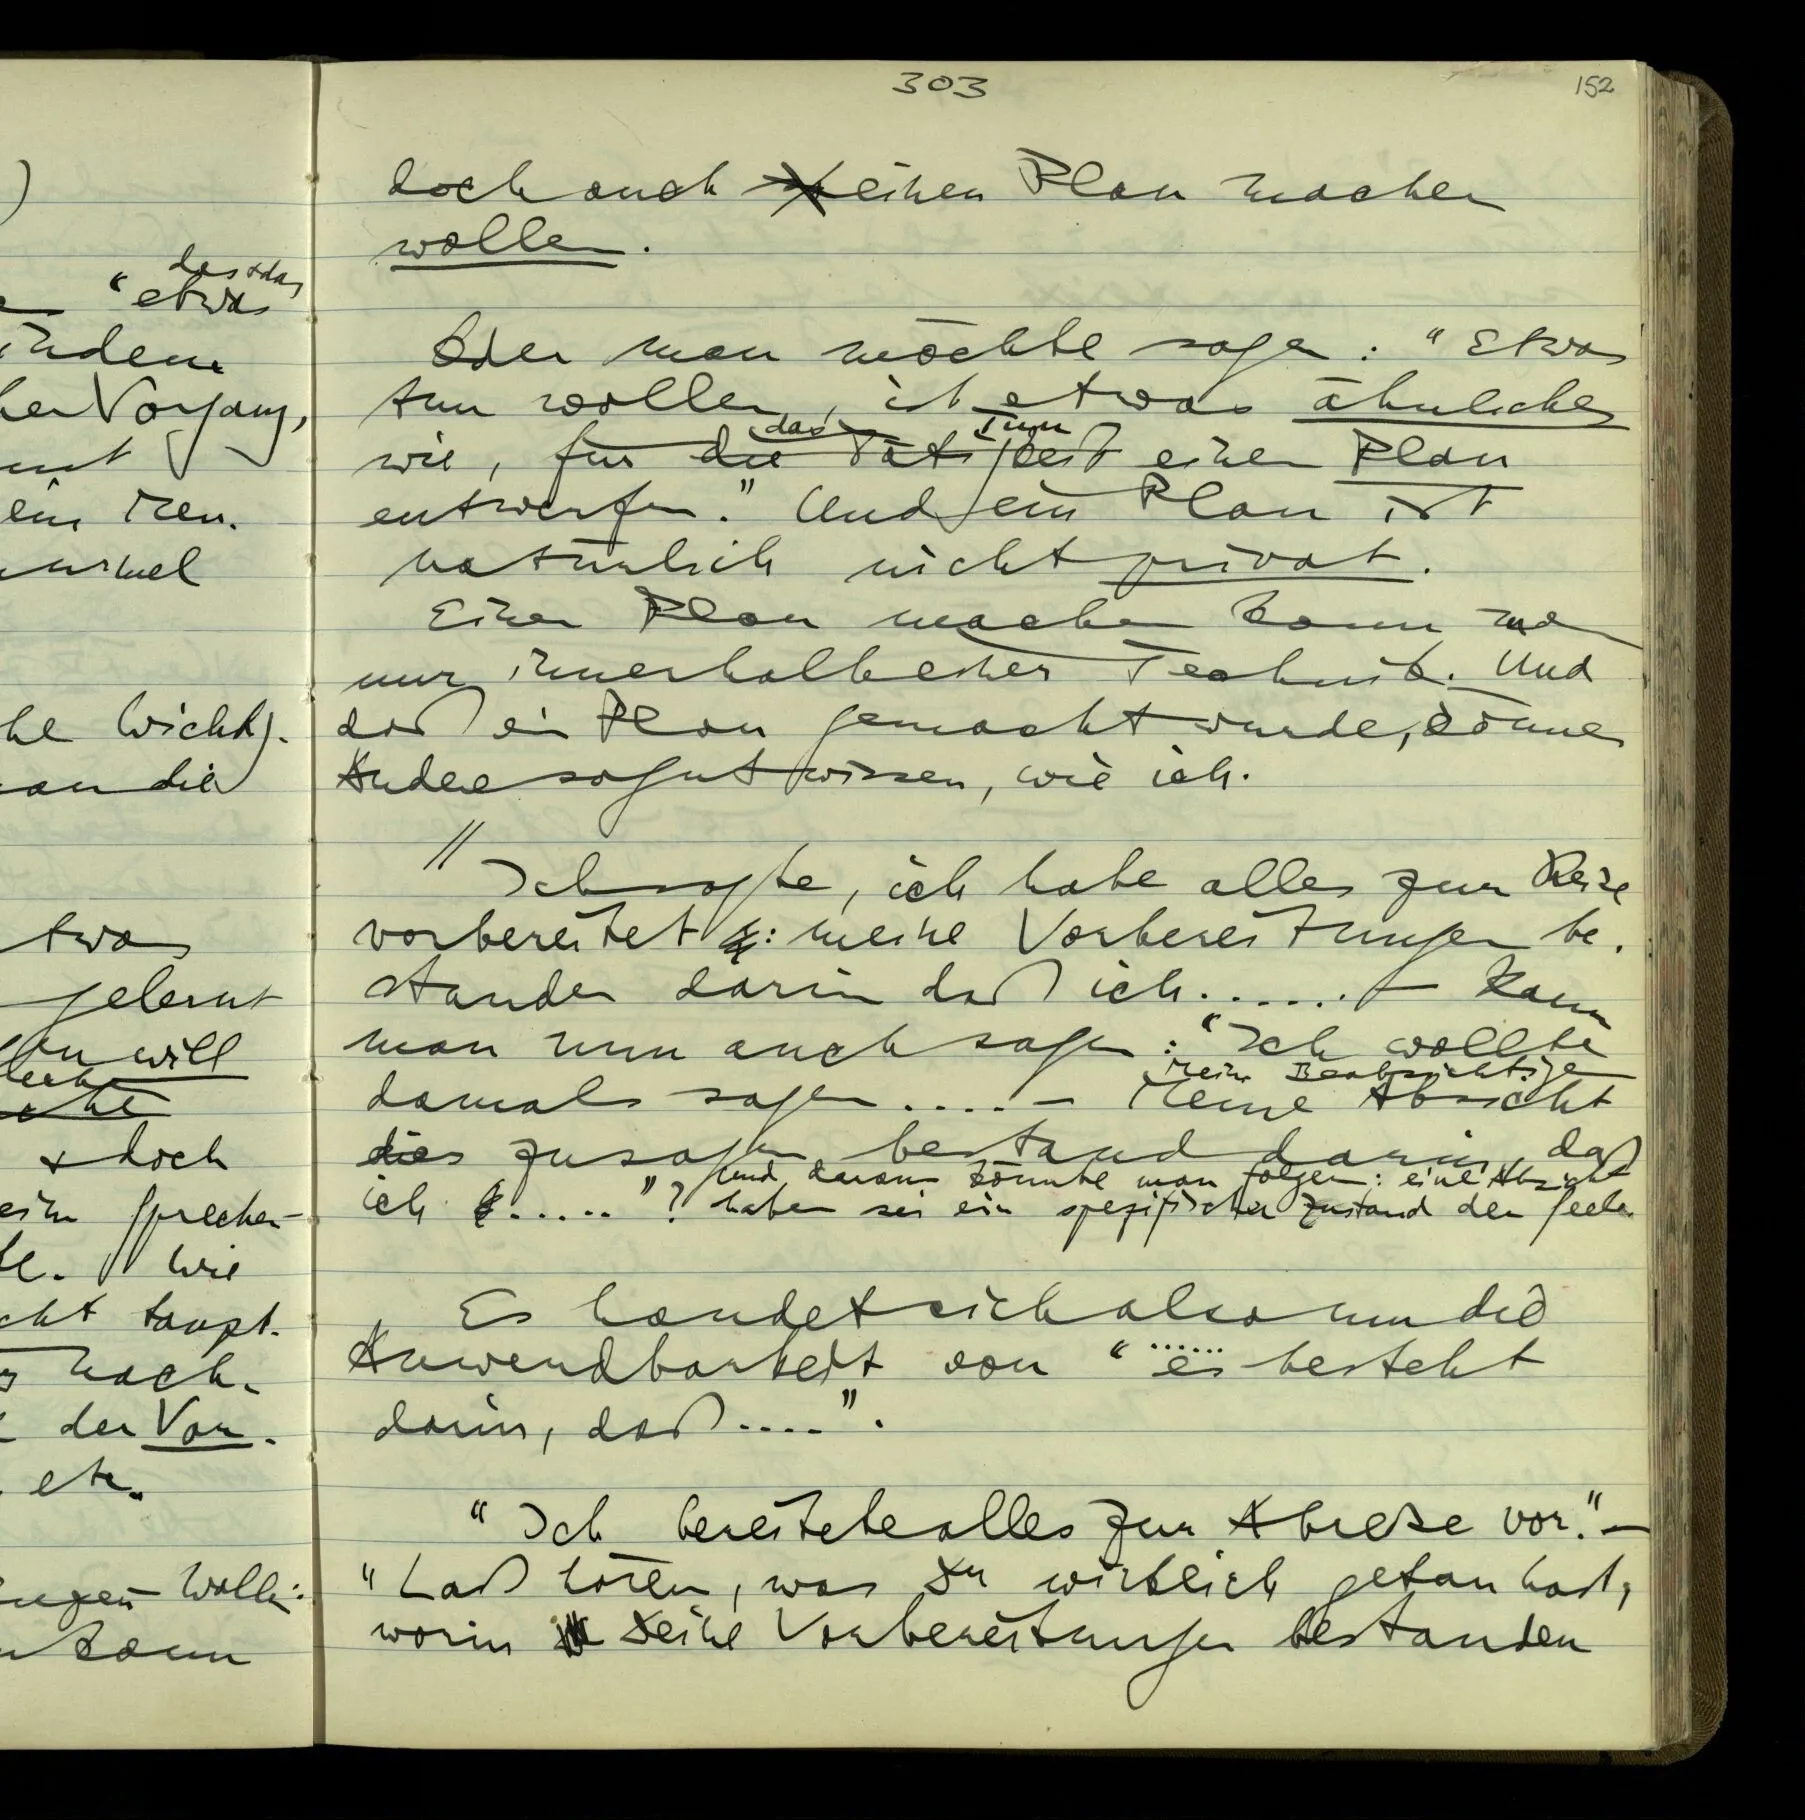 303
152
doch auch einen Plan machen
wollen.
Oder man möchte sagen: "Etwas
tun wollen, ist etwas ähnliches
das Tun
wie, für die Tätigkeit einen Plan
entwerfen." Und ein Plan ist
natürlich nicht privat.
Einen Plan machen kann man
nur innerhalb einer Technik. Und
daß ein Plan gemacht wurde, können
Andere sogut wissen, wie ich.
// Ich sagte, ich habe alles zur Reise
vorbereitet: meine Vorbereitungen be-
standen darin daß ich ...... – Kann
man nun auch sagen: "Ich wollte
mein Beabsichtigen
damals sagen .... – Meine Absicht
dies zu sagen bestand darin, daß
und daraus könnte man folgern: eine Absicht
ich ....."? haben sei ein spezifischer Zustand der Seele
Es handelt sich also um die
......
Anwendbarkeit von "es besteht
darin, daß ....".
"Ich bereitete alles zur Abreise vor." –
"Laß hören, was Du wirklich getan hast,
worin Deine Vorbereitungen bestanden
das & das
"etwas"
indem
her Vorgang,
ein Men-
he Wichtig-
an die
etwas
gelernt
will
& doch
ein Sprechen
Wie
taugt.
nach-
der Vor-
etc.
wollen:
kann